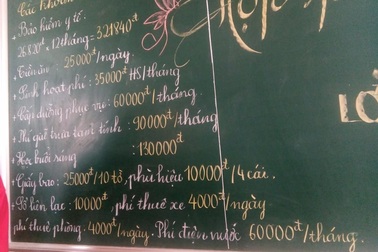 Các khoản
+ Bảo hiểm y tế:
26820đ x 12 tháng = 321840đ
+ Tiền ăn: 25000đ/ngày.
+ Sinh hoạt phí: 35000đ HS/tháng
+ Cấp dưỡng phục vụ: 60000đ/tháng.
+ Phí giữ trưa tạm tính: 90000đ/tháng
+ Học buổi sáng : 130000đ
+ Giấy báo: 25000đ/10 tờ, phù hiệu 10000đ/4 cái.
Sổ liên lạc: 10000đ, phí thuê xe 4000đ/ngày
phí thuê phòng: 4000đ/ngày. Phí điện nước 60000đ/tháng.
Họp
LỚ